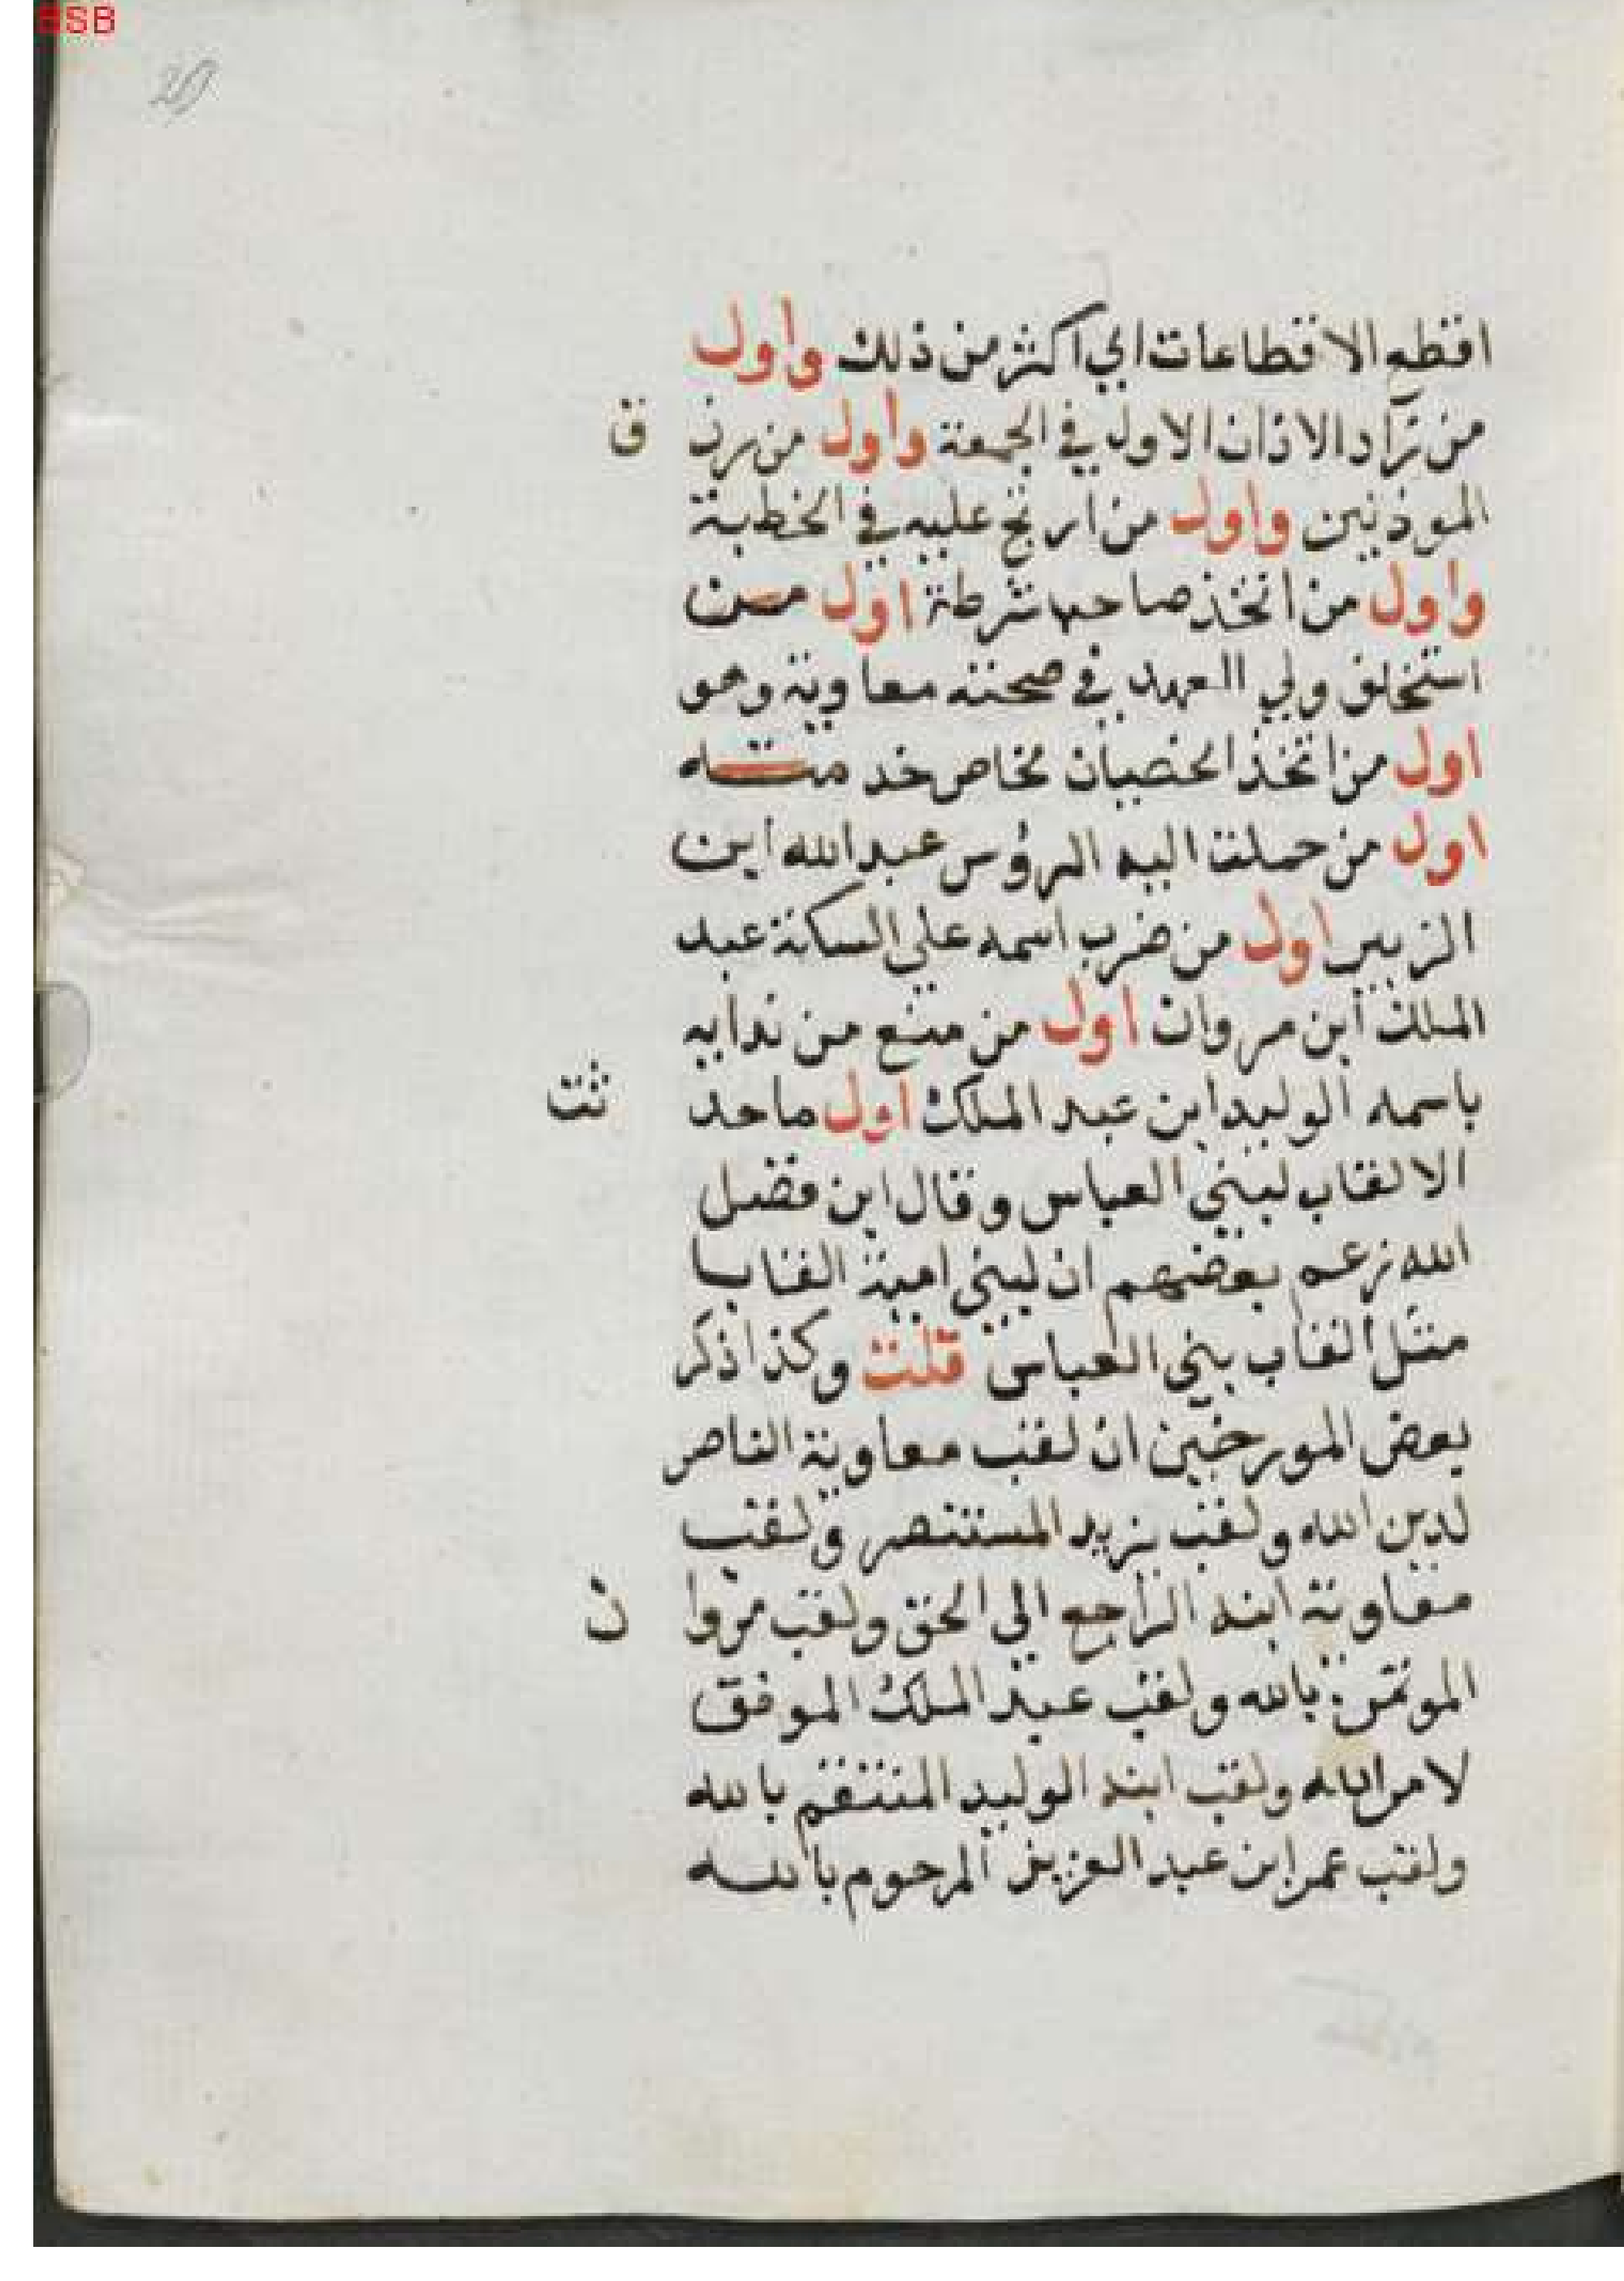 BSB
29
اقطع الاقطاعات اي اكثر من ذلك واول
من زاد الاذان الاول في الجمعة واول من رزق
الموذنين واول من ارتج عليه في الخطبة
واول من اتخذ صاحب شرطة اول من
استخلف ولي العهد في صحته معاوية وهو
اول من اتخذ الخصيان لخاص خدمته
اول من حملت اليه الروس عبد الله ابن
الزبير اول من ضرب اسمه علي السكة عبد
الملك ابن مروان اول من منع من ندايه
باسمه الوليد ابن عبد الملك اول ما حدثت
الالقاب لبني العباس وقال ابن فضل
الله زعم بعضهم ان لبني امية القابا
مثل القاب بني العباس قلت وكذا ذكر
بعض المورخين ان لقب معاوية الناصر
لدين الله ولقب يزيد المستنصر ولقب
معاوية ابنه الراجع الي الحق ولقب مروان
الموتمن بالله ولقب عبد الملك الموفق
لامر الله ولقب ابنه الوليد المنتقم بالله
ولقب عمر ابن عبد العزيز المرحوم بالله